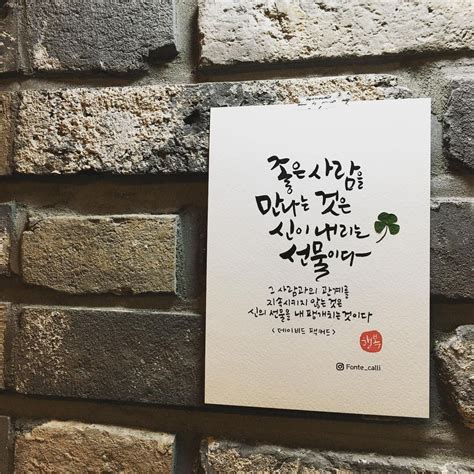 좋은 사람을
만나는 것은
신이 내리는
선물이다
그 사람과의 관계를
지속시키지 않는 것은
신의 선물을 내팽개치는 것이다
<데이비드 팩커드>
행복
Fonte_calli